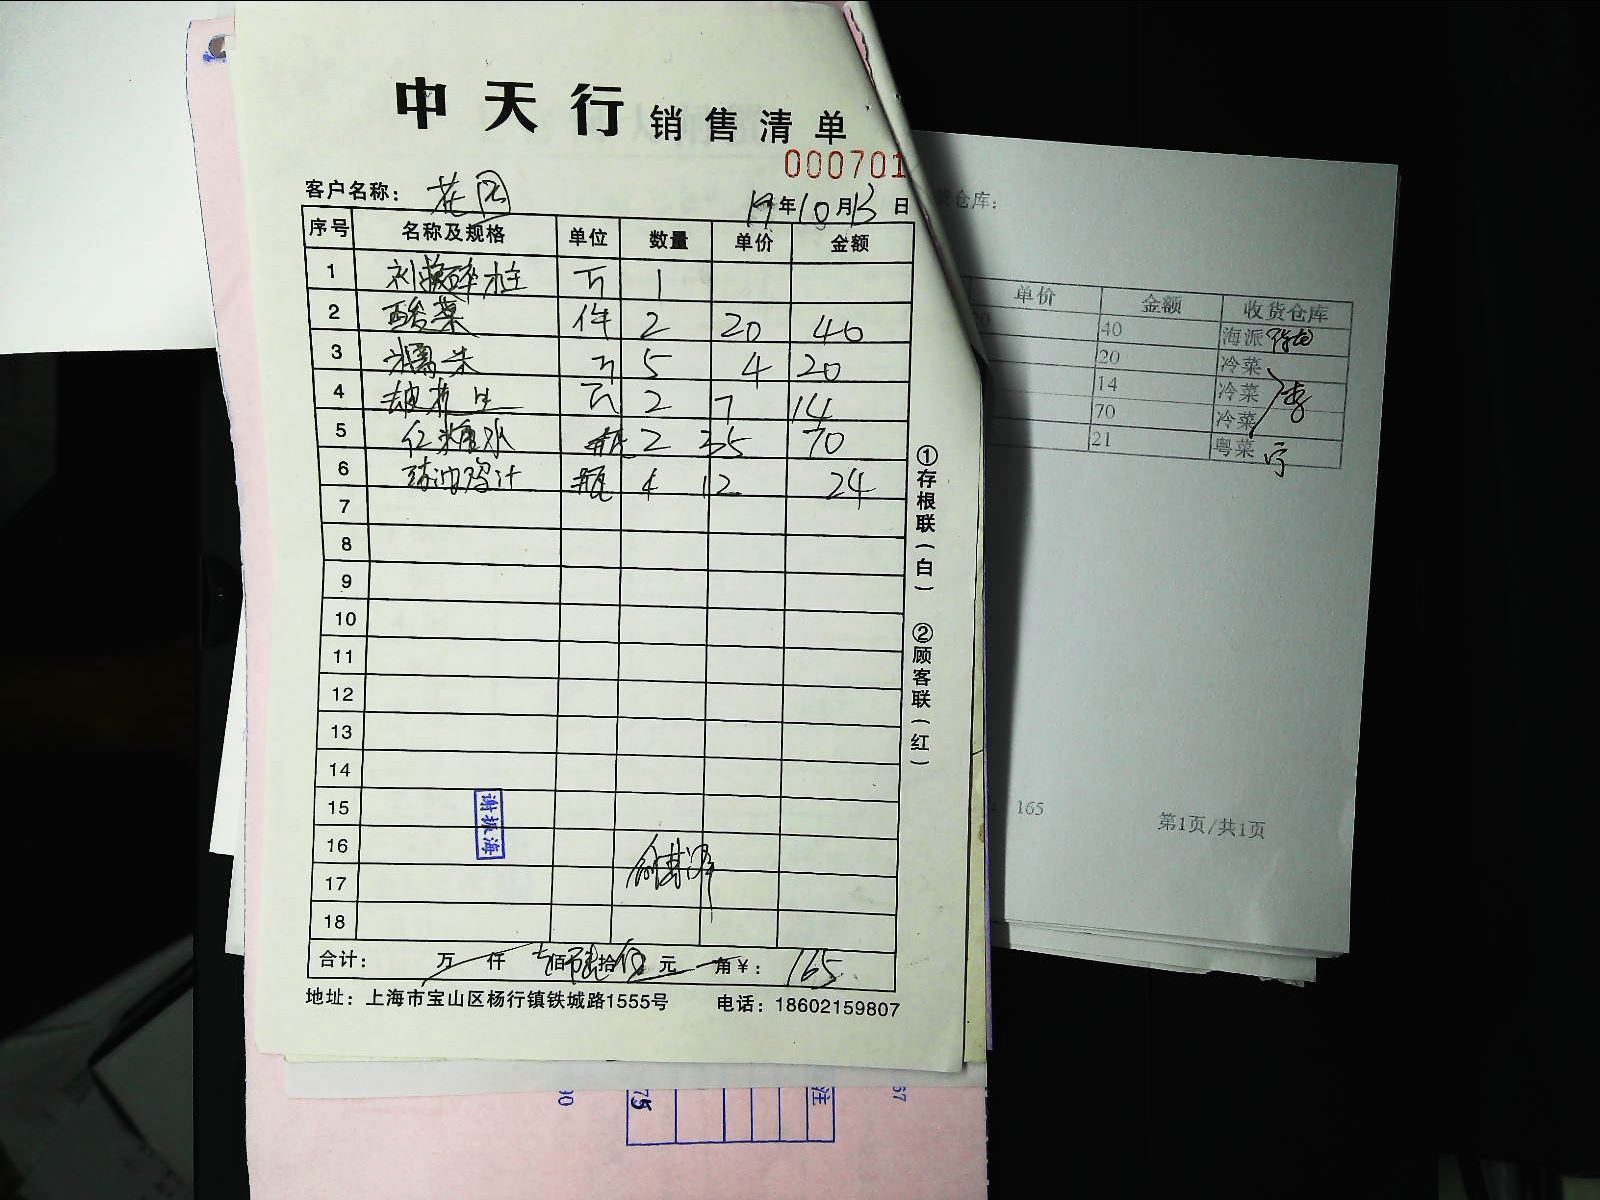 中天行 销售清单
000701
客户名称： 花园 19年10月13日
序号 名称及规格 单位 数量 单价 金额
1 1
2 酸菜 件 2 20 40
3 糯米 5 4 20
4 去皮花生 2 7 14
5 红糖水 瓶 2 35 70
6 豉油鸡汁 瓶 12 24
7
8
9
10
11
12
13
14
15
16
17
18
谢振海
合计： 万 仟 佰 拾 元 角￥： 165
地址：上海市宝山区杨行镇铁城路1555号 电话：18602159807
①存根联（白） ②顾客联（红）
仓库：
单价 金额 收货仓库
40 海派
20 冷菜
14 冷菜
70 冷菜
21 粤菜
165
第1页/共1页
75
注